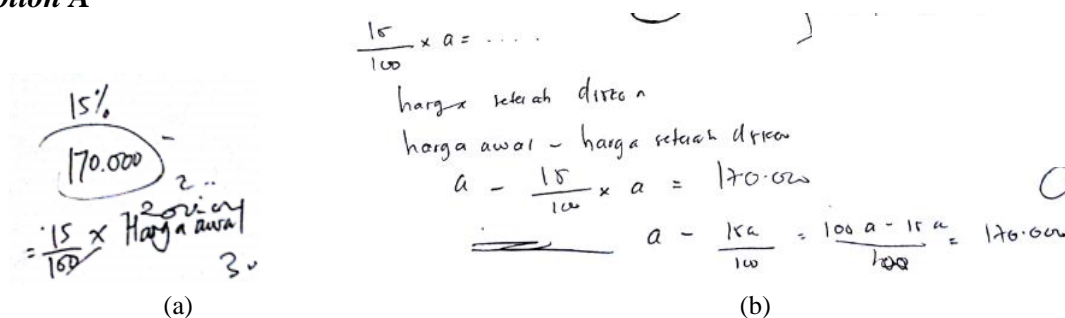 15%
170.000
= 15/100 × Harga awal
(a)
15/100 × a = ....
harga setelah diskon
harga awal - harga setelah diskon
a - 15/100 × a = 170.000
a - 15a/100 = 100a - 15a/100 = 170.000
(b)